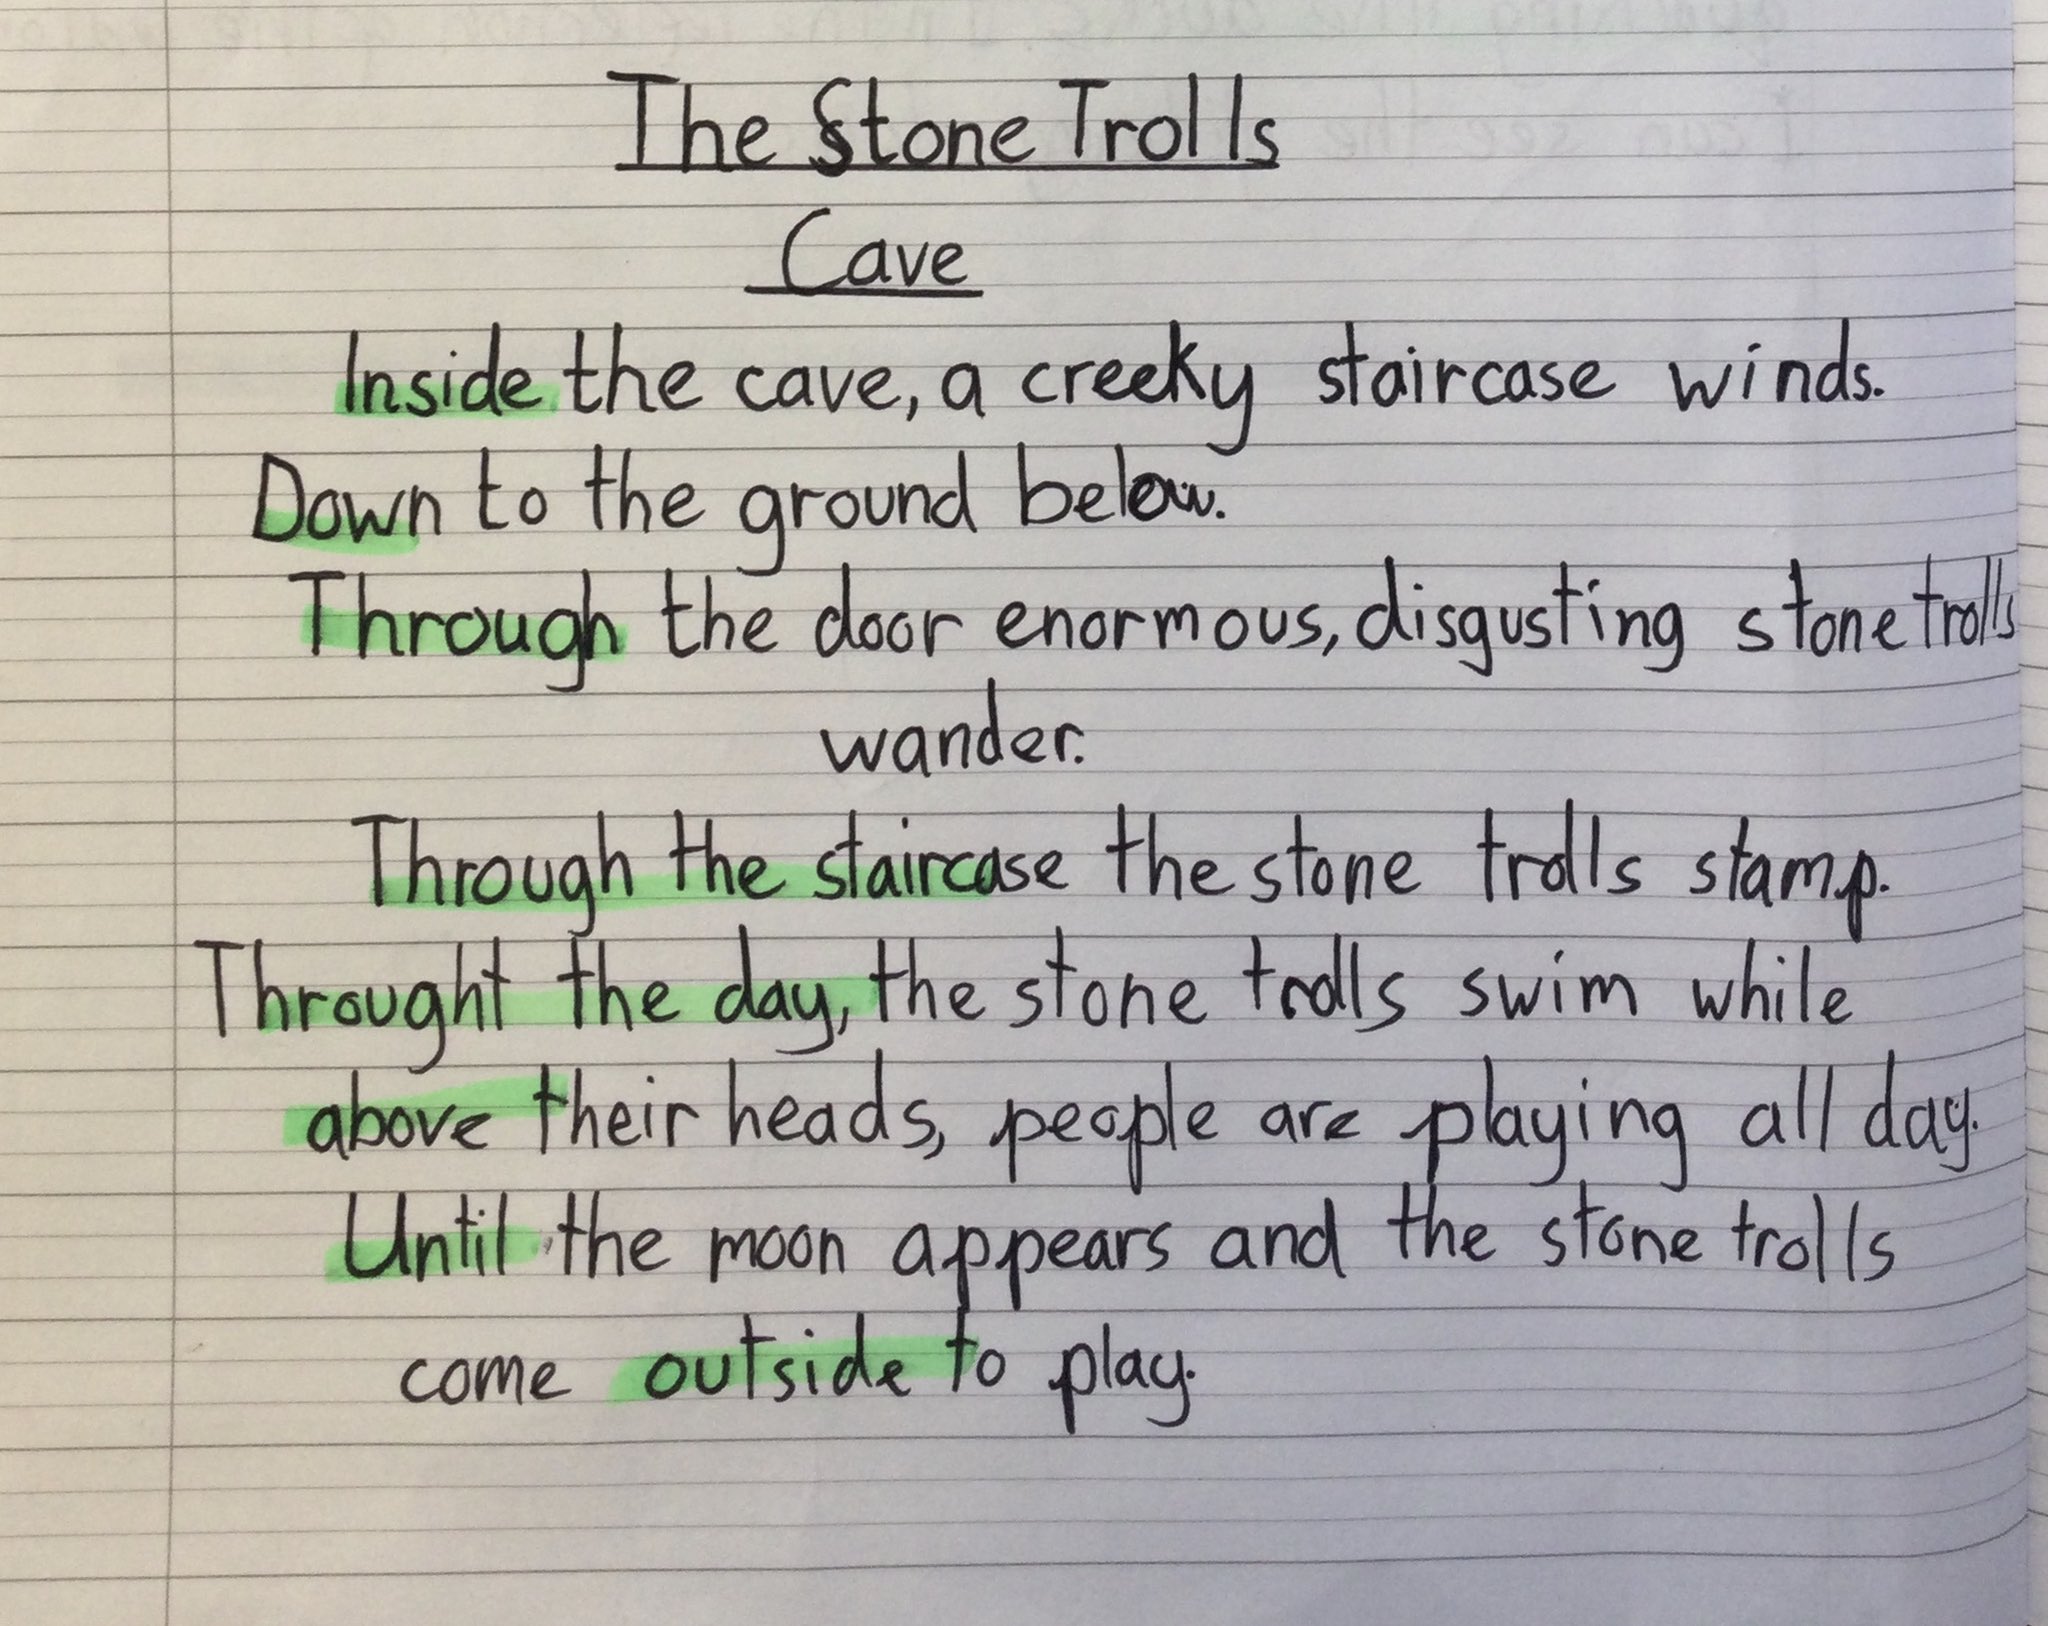 The Stone Trolls
Cave
Inside the cave, a creeky staircase winds.
Down to the ground below.
Through the door enormous, disgusting stone trolls
wander.
Through the staircase the stone trolls stamp.
Throught the day, the stone trolls swim while
above their heads, people are playing all day.
Until the moon appears and the stone trolls
come outside to play.